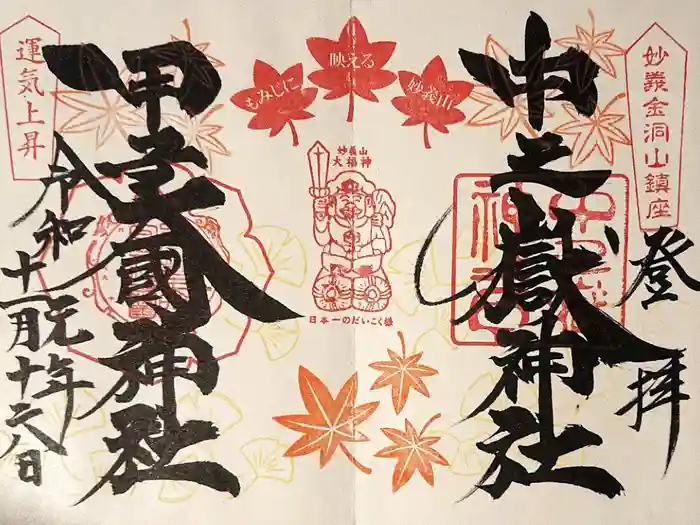 妙義金洞山鎮座
登拝
中之嶽神社
もみじに
映える
妙義山
妙義山
大福神
日本一のだいこく様
運気上昇
甲子大國神社
令和元年
十一月十六日